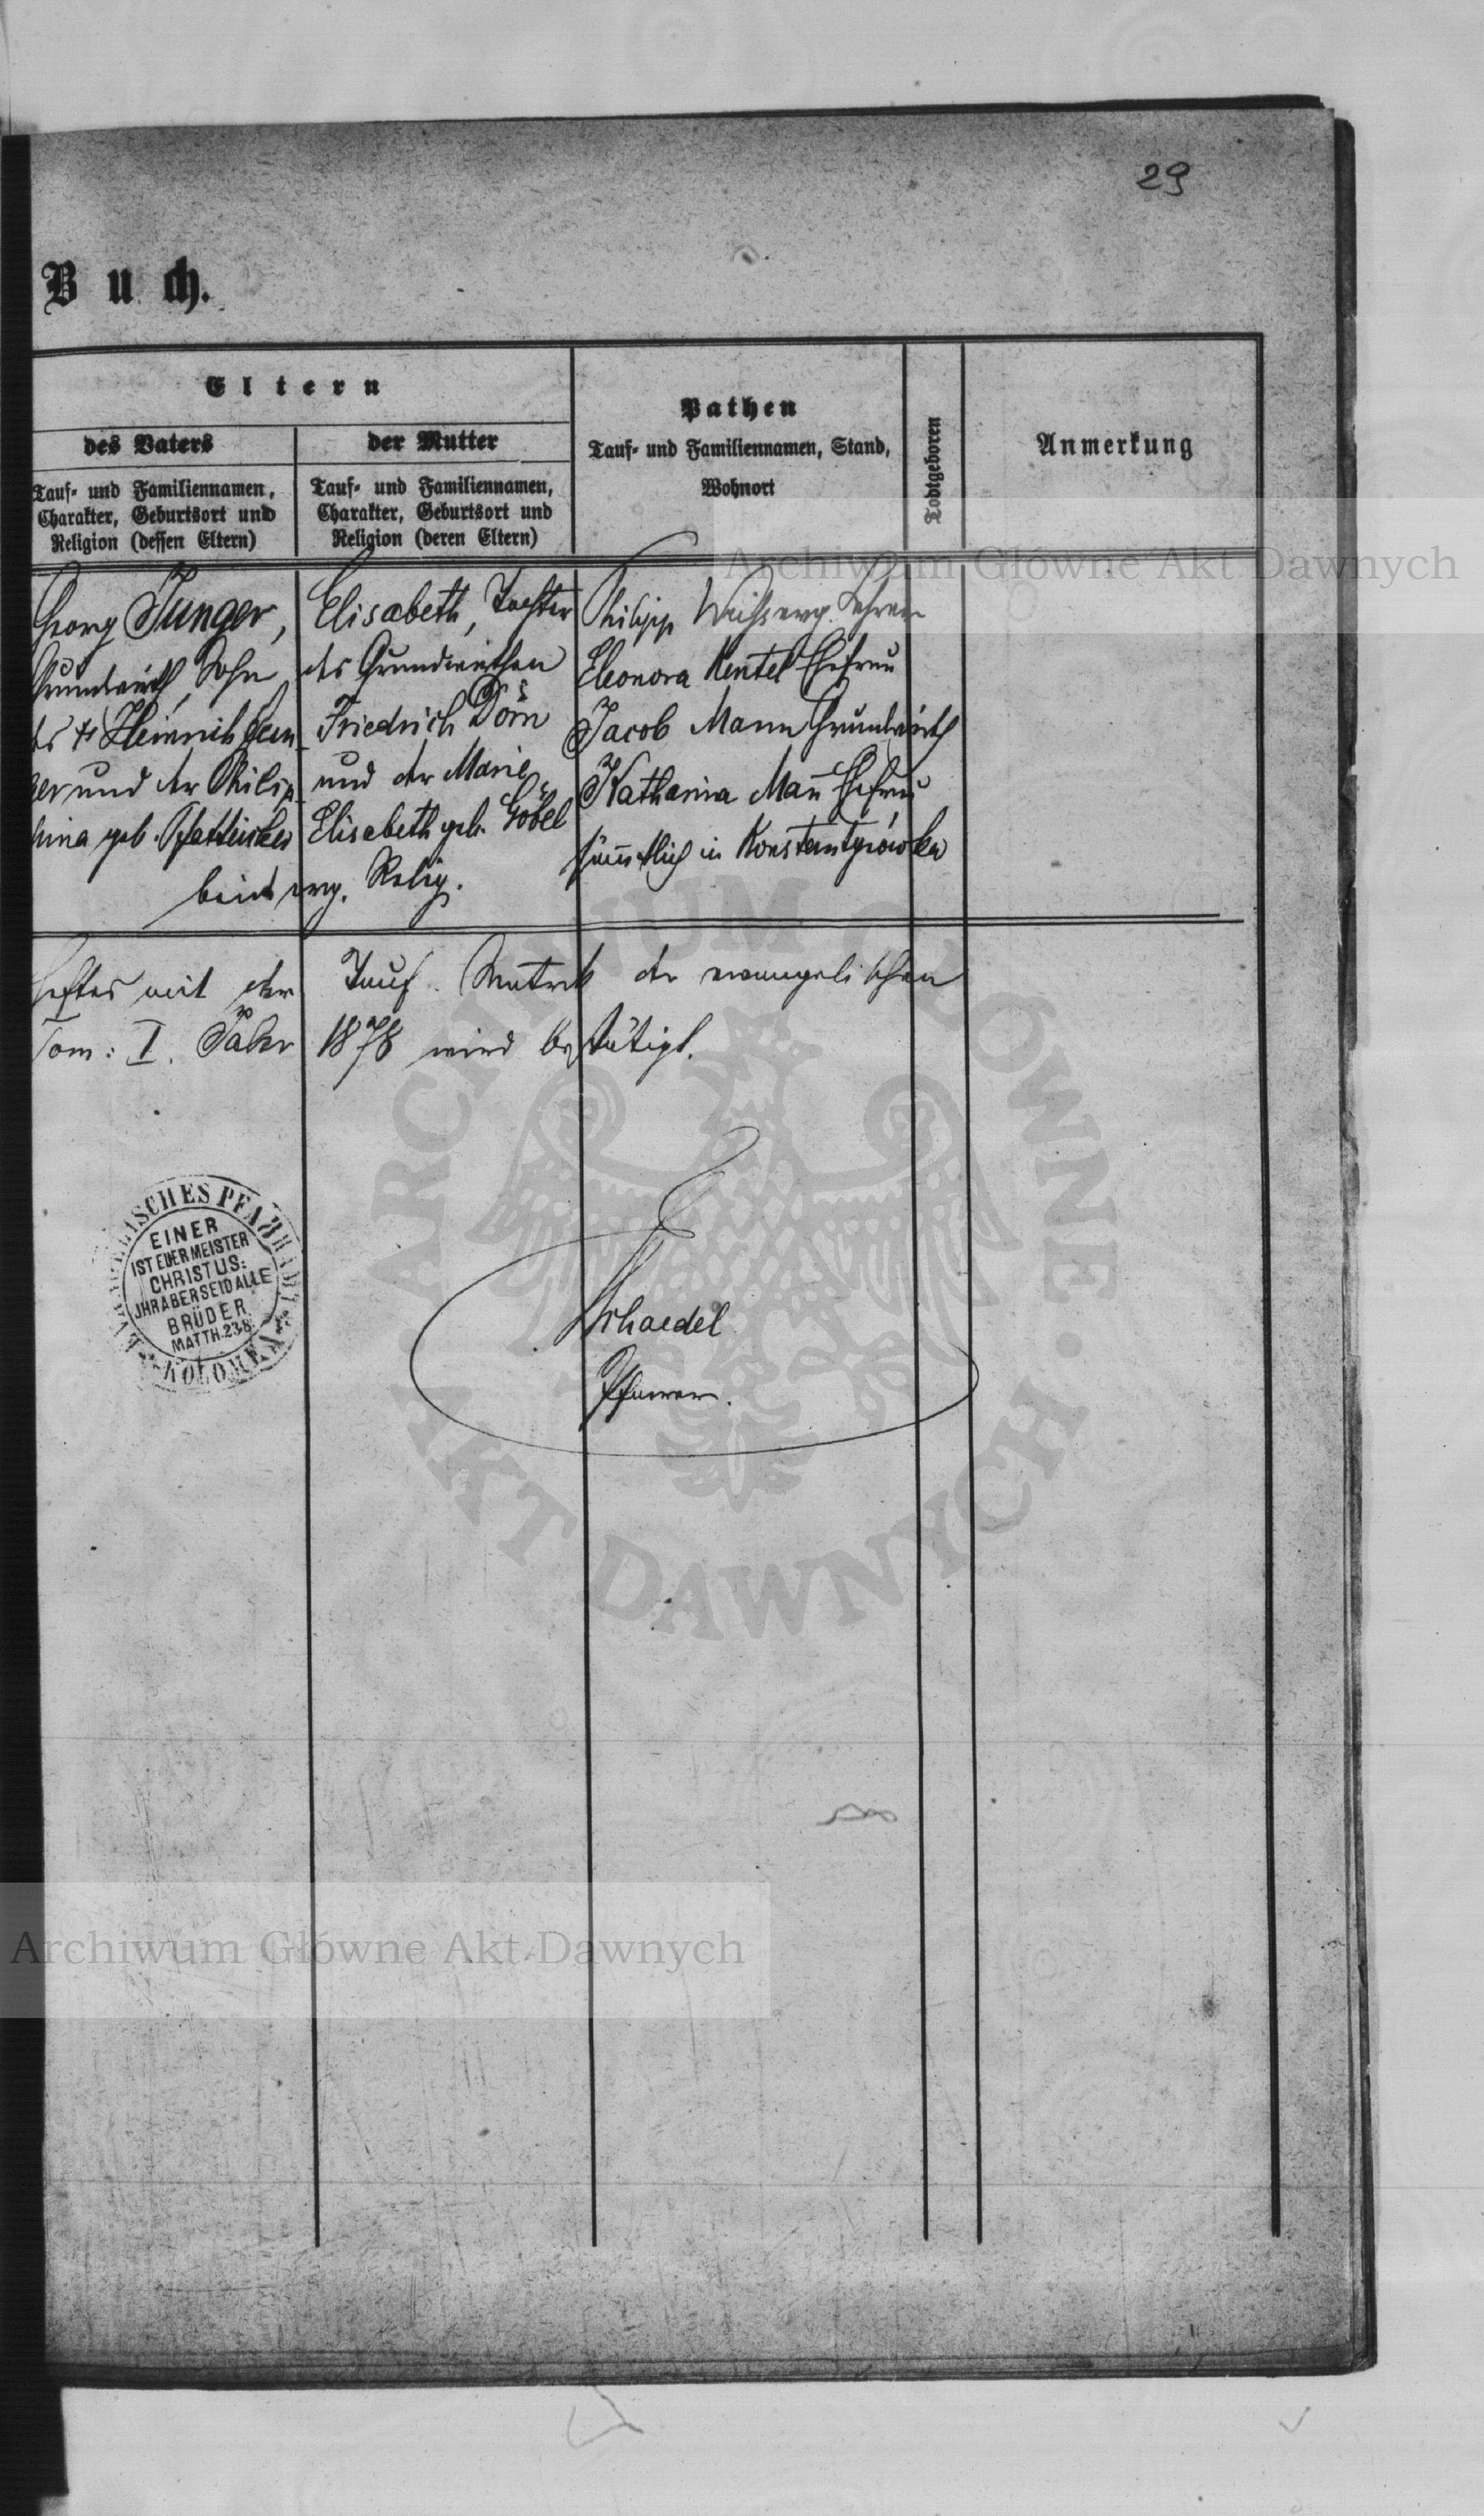 29
Buch.
Eltern
des Vaters
Tauf- und Familiennamen,
Charakter, Geburtsort und
Religion (dessen Eltern)
der Mutter
Tauf- und Familiennamen,
Charakter, Geburtsort und
Religion (deren Eltern)
Pathen
Tauf- und Familiennamen, Stand,
Wohnort
Todtgeboren
Anmerkung
Georg Junger,
Grundwirth, Sohn
des † Heinrich Jun-
ger und der Philip-
pina geb.
Elisabeth, Tochter
des Grundwirthen
Friedrich Dorn
und der Marie
Elisabeth geb. Göbel
beide evg. Relig.
Philipp Weiss evg. Lehrer
Eleonora Kentel Ehefrau
Jacob Mann Grundwirth
Katharina Man̄ Ehefrau
säm̄tlich in Konstantynówka
mit der Tauf-Matrik der evangelischen
Tom: I. Jahr 1878 wird bestätigt.
EVANGELISCHES PFARRAMT
KOLOMEA
EINER
IST EUER MEISTER
CHRISTUS:
JHR ABER SEID ALLE
BRÜDER
MATTH. 23.8.
Schaedel
Pfarrer.
Archiwum Główne Akt Dawnych
ARCHIWUM GŁÓWNE
AKT DAWNYCH
Archiwum Główne Akt Dawnych